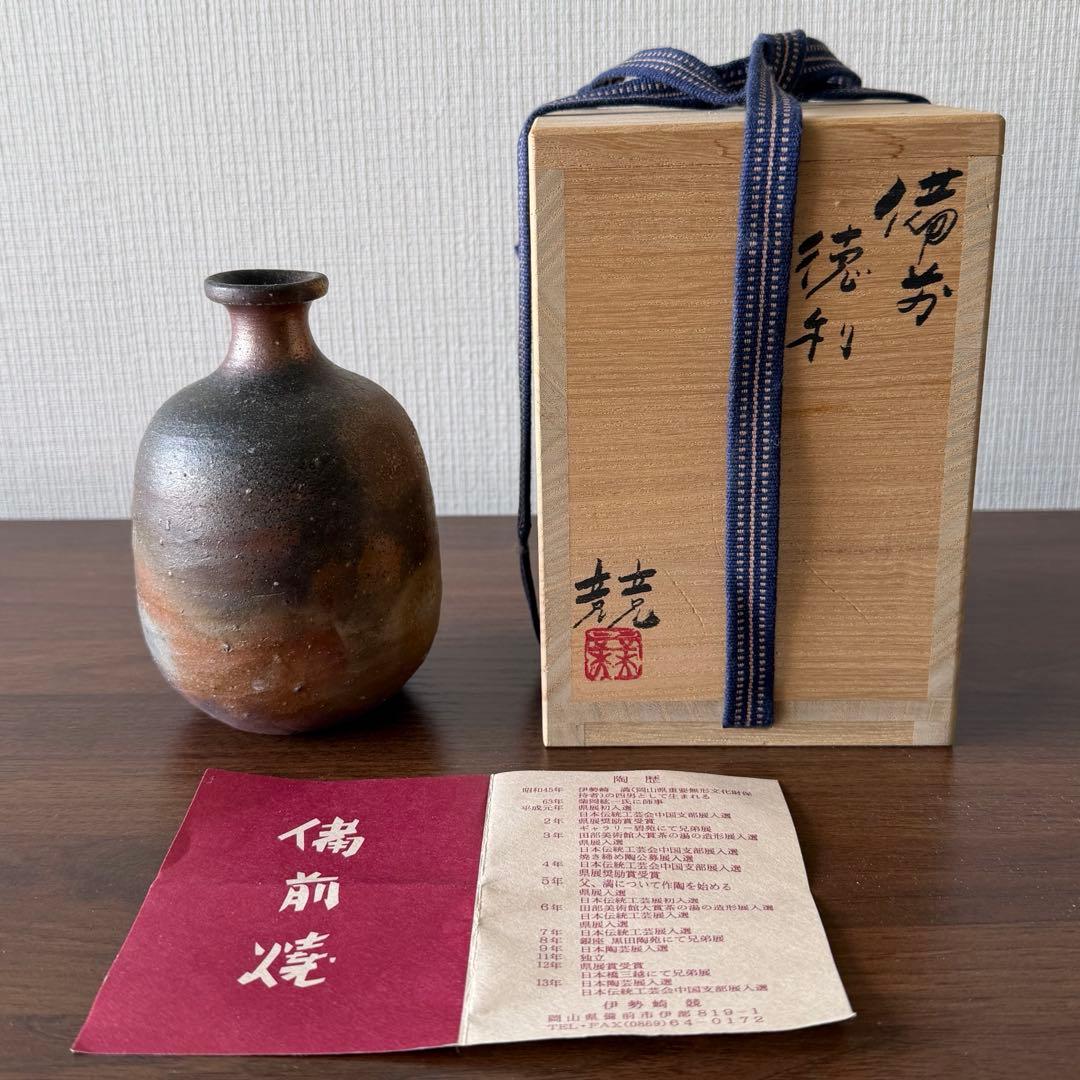 備前
徳利
競
備前焼
陶歴
昭和45年 伊勢崎 満(岡山県重要無形文化財保
持者)の四男として生まれる
63年 柴岡紘一氏に師事
平成元年 県展初入選
日本伝統工芸会中国支部展入選
2年 県展奨励賞受賞
ギャラリー碧苑にて兄弟展
3年 田部美術館大賞茶の湯の造形展入選
県展入選
日本伝統工芸会中国支部展入選
焼き締め陶公募展入選
4年 日本伝統工芸会中国支部展入選
県展奨励賞受賞
5年 父、満について作陶を始める
県展入選
日本伝統工芸展初入選
6年 田部美術館大賞茶の湯の造形展入選
日本伝統工芸展入選
県展入選
7年 日本伝統工芸展入選
8年 銀座 黒田陶苑にて兄弟展
9年 日本陶芸展入選
11年 独立
12年 県展賞受賞
日本橋三越にて兄弟展
13年 日本陶芸展入選
日本伝統工芸会中国支部展入選
伊勢崎 競
岡山県備前市伊部819-1
TEL・FAX(0869)64-0172